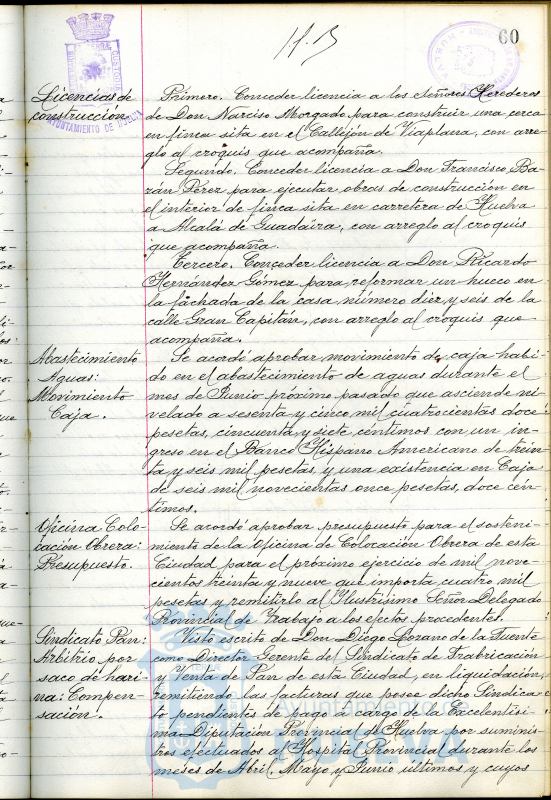 60
Licencias de
construccion.
AYUNTAMIENTO DE HUELVA
Primero. Conceder licencia a los Señores Herederos
de Don Narciso Morgado para construir una cerca
en finca sita en el Callejón de Viaplana, con arre-
glo al croquis que acompaña.
Segundo. Conceder licencia a Don Francisco Ba-
zán Pérez para ejecutar obras de construcción en
el interior de finca sita en carretera de Huelva
a Alcalá de Guadaíra, con arreglo al croquis
que acompaña.
Tercero. Conceder licencia a Don Ricardo
Hernández Gómez para reformar un hueco en
la fachada de la casa, número diez y seis de la
calle Gran Capitán, con arreglo al croquis que
acompaña.
Abastecimiento
Aguas:
Movimiento
Caja.
Se acordó aprobar movimiento de caja habi-
do en el abastecimiento de aguas durante el
mes de Junio próximo pasado que asciende ni-
velado a sesenta y cinco mil cuatrocientas doce
pesetas, cincuenta y siete céntimos con un in-
greso en el Banco Hispano Americano de trein-
ta y seis mil pesetas, y una existencia en Caja
de seis mil novecientas once pesetas, doce cén-
timos.
Oficina Colo-
cación Obrera:
Presupuesto.
Se acordó aprobar presupuesto para el sosteni-
miento de la Oficina de Colocación Obrera de esta
Ciudad para el próximo ejercicio de mil nove-
cientos treinta y nueve que importa cuatro mil
pesetas y remitirlo al Ilustrísimo Señor Delegado
Provincial de Trabajo a los efectos procedentes.
Sindicato Pan:
Arbitrio por
saco de hari-
na: Compen-
sación.
Visto escrito de Don Diego Lozano de la Fuente
como Director Gerente del Sindicato de Fabricación
y Venta de Pan de esta Ciudad, en liquidación,
remitiendo las facturas que posee dicho Sindica-
to pendientes de pago a cargo de la Excelentísi-
ma Diputación Provincial de Huelva por suminis-
tros efectuados al Hospital Provincial durante los
meses de Abril, Mayo y Junio últimos y cuyos
Ayuntamiento de
HUELVA